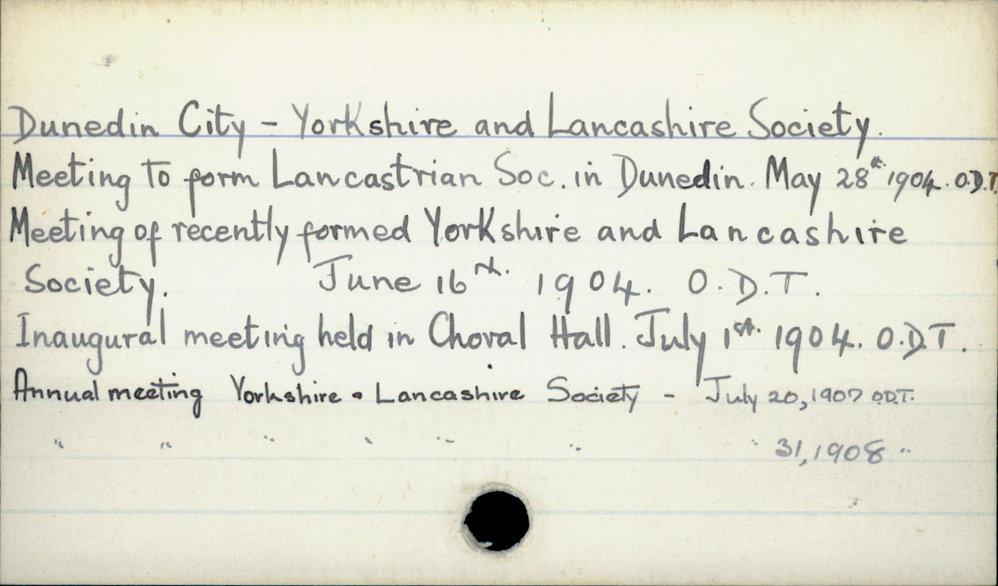 Dunedin City - Yorkshire and Lancashire Society.
Meeting to form Lancastrian Soc. in Dunedin. May 28th 1904. O.D.T.
Meeting of recently formed Yorkshire and Lancashire
Society. June 16th. 1904. O.D.T.
Inaugural meeting held in Choral Hall. July 1st. 1904. O.D.T.
Annual meeting Yorkshire & Lancashire Society - July 20, 1907 O.D.T.
" " " " " " " 31, 1908 "